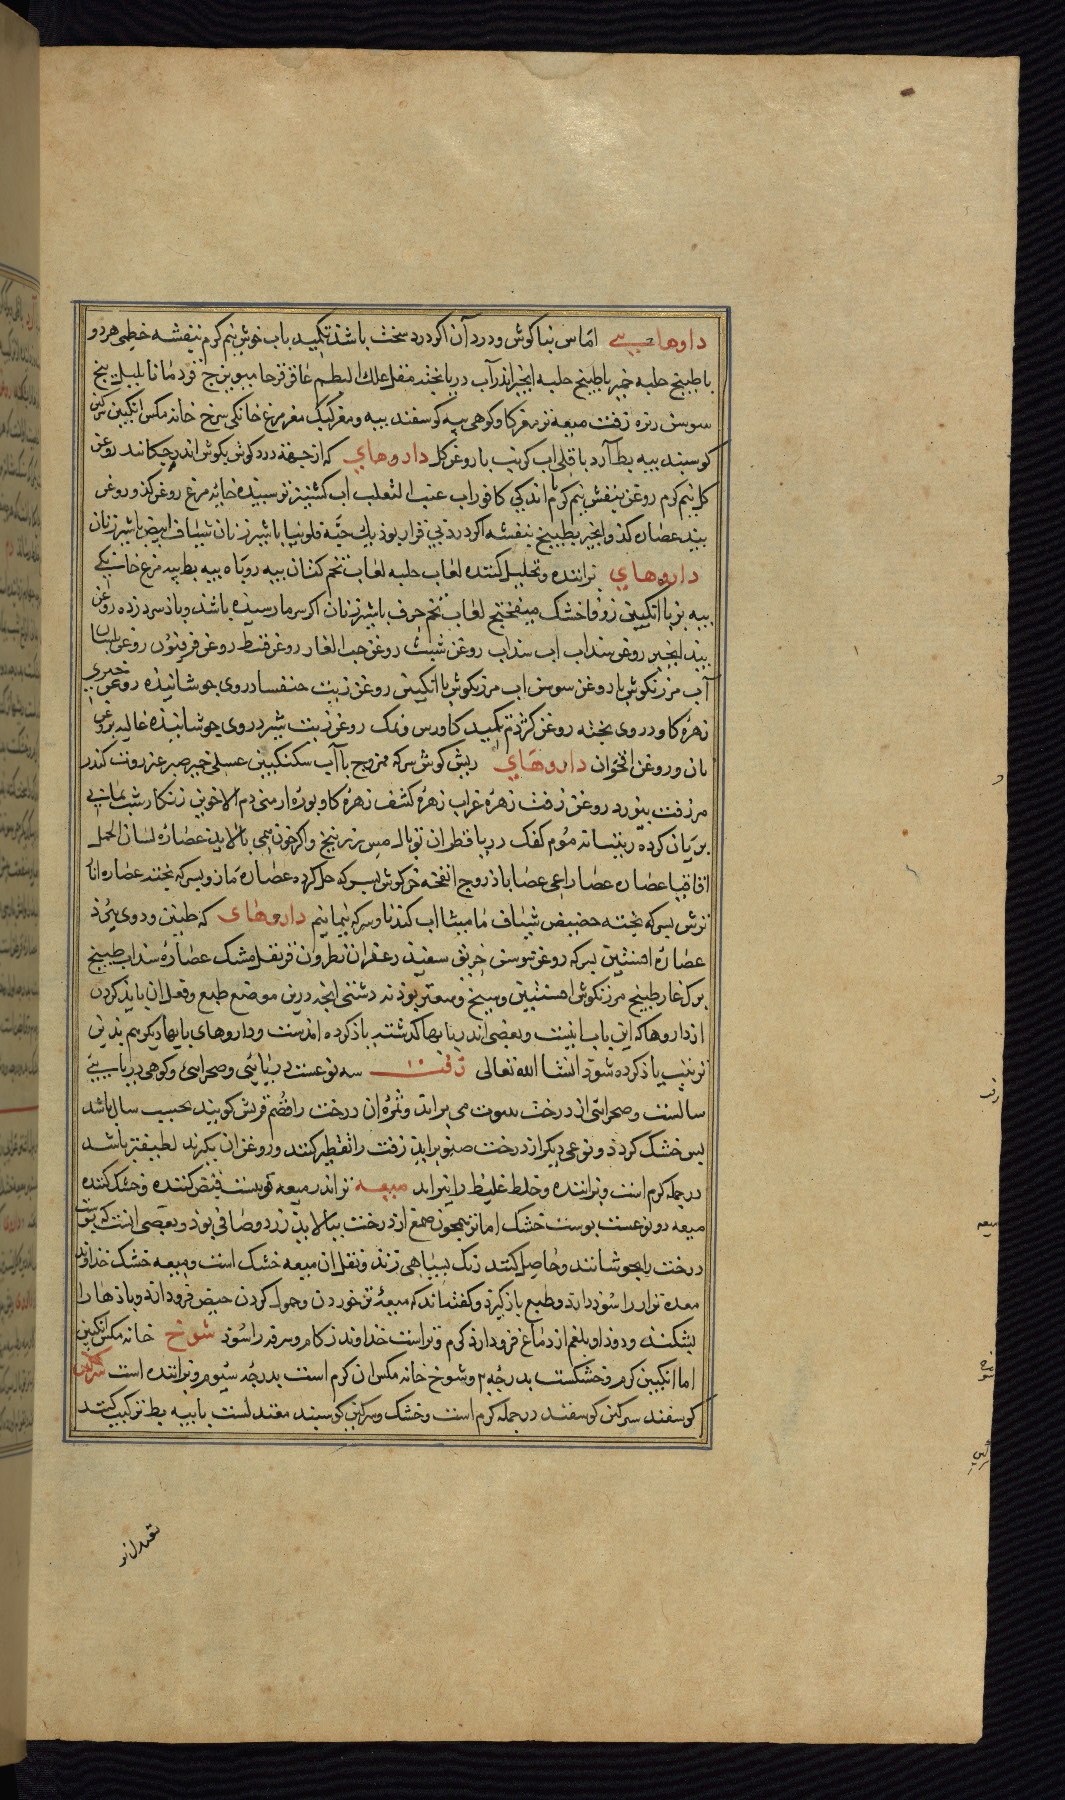 داروهاے اماس بناکوش ودرد آن اکر درد سخت باشذ تکمید باب خوش نیم کرم بنفشه خطمی هر دو
با طبیخ حلبه خمیر با طبیخ حلبه انجیر اندر آب دریا بخته مقل علک البطم عاقرقرحا میویزج قردمانا بلیل بیخ
سوسن زفت میعه تر مغز کاو کوهی بیه کوسفند بیه ومغز مرغ خانکی خانه مکس انکبین سرکین
کوسبند بیه بط آرد باقلی اب کرنب با روغن کل داروهاي که از جهة درد کوش بکوش اندر چکانند روغن
کل نیم کرم روغن بنفش نیم کرم اندکی کافور اب عنب الثعلب اب کشنیز تر سبیده خایه مرغ روغن کذو روغن
بیذ عصاره کذو انجیر بطبیخ بنفشه اکر درد بی قرار بوذ یک حبه فلونیا با شیر زنان شیاف ابیض با شیر زنان
داروهاي براننده وتحلیل کننده لعاب حلبه لعاب تخم کتان بیه روباه بیه بط بیه مرغ خانیکے
بیه بز با انکبین زوفا خشک میفختج لعاب تخم حرف باشیر زنان اکر سرما رسیذه باشذ وباذ سرد زده روغن
بیذ انجیر روغن سداب اب سداب روغن شبت روغن حب الغار روغن قسط روغن فرفیون روغن بلسان
آب مرزنکوش با روغن سوسن اب مرزنکوش با انکبین روغن زیت خنفسا در وی جوشانیذه روغن خیری
زهره کاو در وی بخته روغن کژدم تکمید کاورس ونمک روغن زیت شبر در وی جوشانیذه غالیه روغن
بان وروغن اقحوان داروهاي ریش کوش سرکه ممزوج با آب سکنکبین عسلی خبر صبر عنزروت کندر
مر زفت روغن زفت زهره غراب زهره کشف زهره کاو بوره ارمنی دم الاخوین زنکار شب یمانی
بریان کرده موم کفک دریا قطران توبال مس زرنیخ واکر خون همی بالایذ عصاره لسان الحمل
اقاقیا عصاره عصا راعی عصا باذروج انفخه خرکوش بسرکه حل کرده عصاره مازو بسرکه بخته عصاره انار
ترش بسرکه بخته حضیض شیاف مامیثا اب کندنا وسرکه نیمانیم داروهای که طنین ودوی ببرذ
عصاره افسنتین بسرکه روغن سوسن خربق سفیذ زعفران نطرون قرنفل مشک عصاره سداب طبیخ
برک غار طبیخ مرزنکوش افسنتین وسیخ وسعتر بوذنه دشتی انجه درین موضع طبع وفعل ان یاذ کردن
از داروها که این باب اینست وبعضی اندر بابها کذشته یاذ کرده امذست وداروهای بابها دیکر هم بدین
ترتیب یاذ کرده شوذ انشا الله تعالی زفت سه نوعست دریائی وصحرائی وکوهی دریا
سالست وصحرائی از درخت می برایذ وثمره ان درخت را قضم قریش کویند سال باشد
بس خشک کردذ ونوعی دیکر از درخت صنوبر ایذ زفت را تقطیر کنند وروغن ان بکیرند لطیفتر باشد
در جمله کرم است وبراننده وخلط غلیظ را نبراند میعه تر اندر میعه قوتست قبض کننده وخشک کننده
میعه دو نوعست بوست خشک اما تر همجون صمغ از درخت ببالایذ زرد وصافی بوذ وبعضی انست که بوست
درخت را بجوشانند وحاصل کنند رنک بسیاهی زند وثقل ان میعه خشک است ومیعه خشک خذاوند
معده تر را سوذ دارذ وطبع باز کیرد وکفته اند که میعه تر خوردن وحمول کردن حیض فرودارذ وباذها را
بشکند ودوذ او بلغم از دماغ فرود ارذ کرم وتراست خذاوند زکام وسرفه را سوذ شوخ خانه مکس انکبین
اما انکبین کرم وخشکست بدرجه ٢ وشوخ خانه مکس ان کرم است بدرجه سیوم وبراننده است سرکین
کوسفند سرکین کوسفند در جمله کرم است وخشک وسرکین کوسبند معتدلست با بیه بط ترکیب کنند
زفت
میعه
شوخ
سرکین